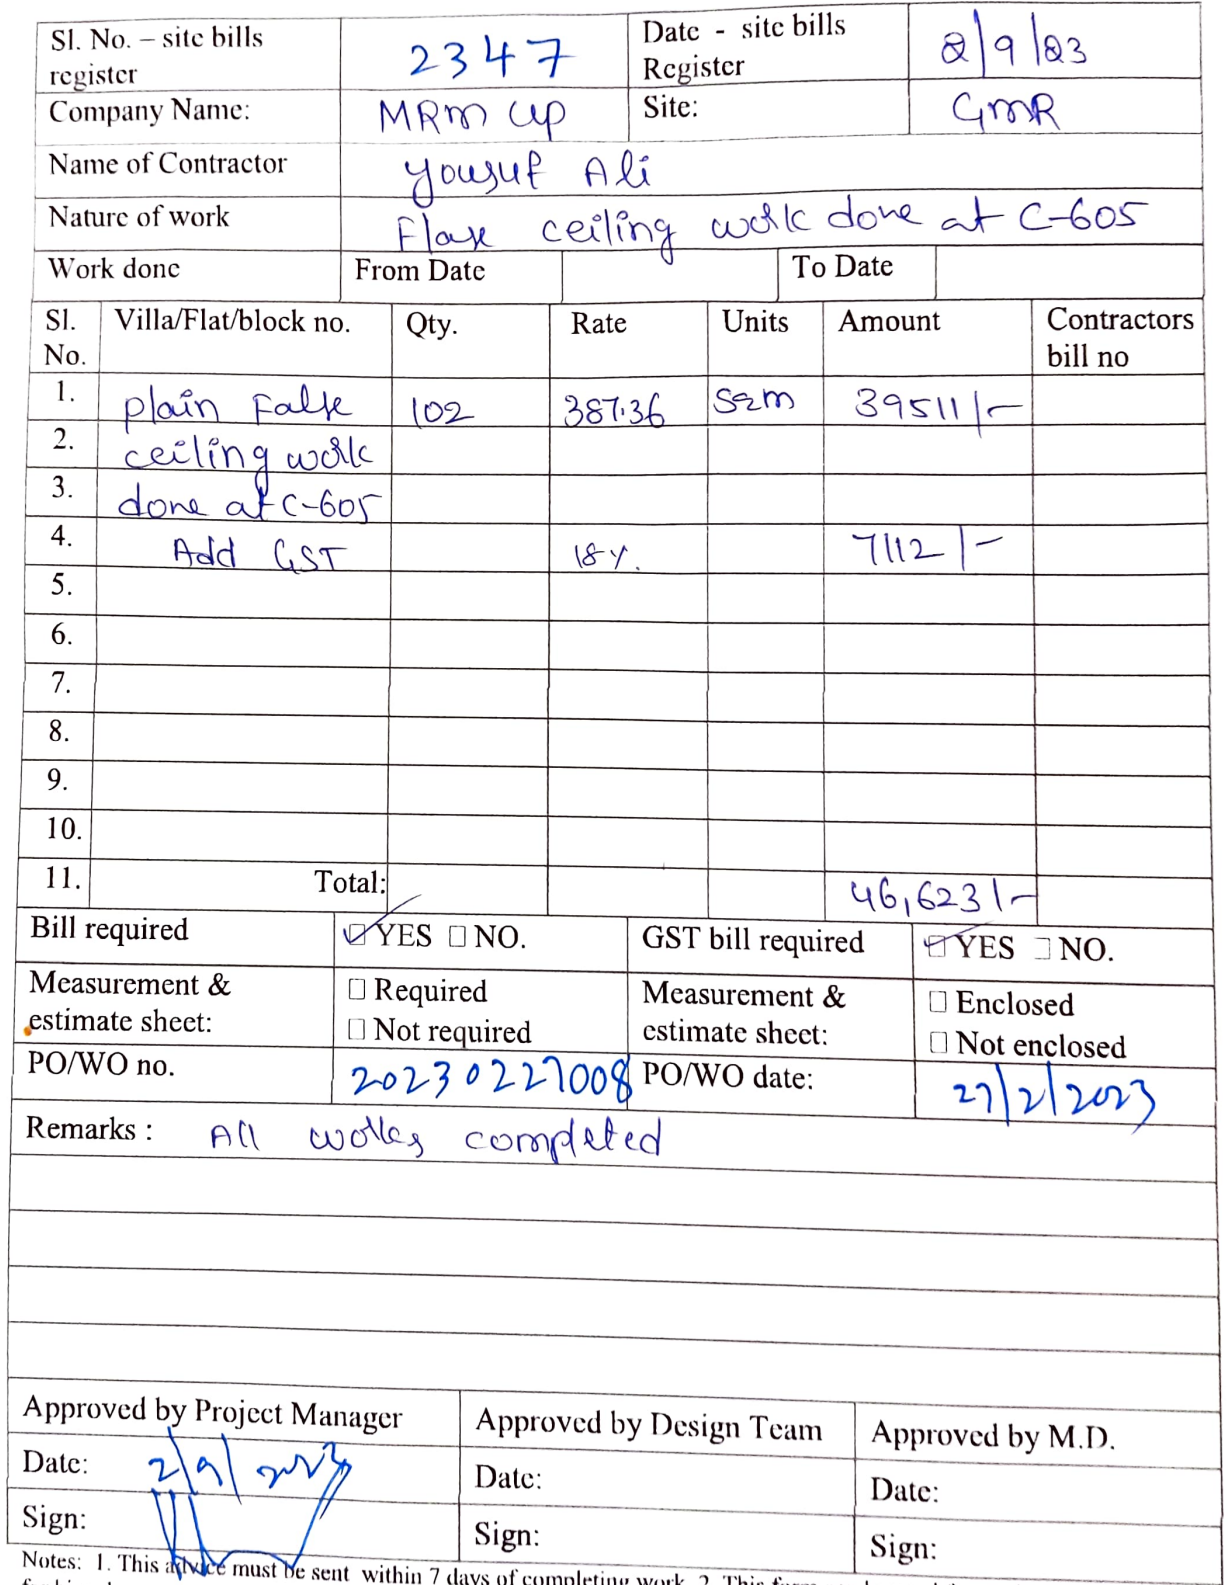 Sl. No. – site bills register 2347 Date - site bills Register 2/9/23
Company Name: MRM up Site: GMR
Name of Contractor Yousuf Ali
Nature of work Flase ceiling work done at C-605
Work done From Date To Date
Sl. No. Villa/Flat/block no. Qty. Rate Units Amount Contractors bill no
1. plain False 102 387.36 Sqm 39511/-
2. ceiling work
3. done at C-605
4. Add GST 18%. 7112/-
5.
6.
7.
8.
9.
10.
11. Total: 46,623/-
Bill required ☑ YES ☐ NO. GST bill required ☑ YES ☐ NO.
Measurement & estimate sheet: ☐ Required ☐ Not required Measurement & estimate sheet: ☐ Enclosed ☐ Not enclosed
PO/WO no. 20230227008 PO/WO date: 27/2/2023
Remarks : All works completed
Approved by Project Manager Approved by Design Team Approved by M.D.
Date: 2/9/2023 Date: Date:
Sign: Sign: Sign:
Notes: 1. This advice must be sent within 7 days of completing work. 2. This form